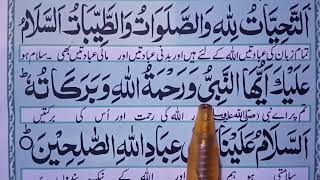 اَلتَّحِيَّاتُ لِلّٰهِ وَالصَّلَوَاتُ وَالطَّيِّبَاتُ اَلسَّلَامُ
تمام زبان کی عبادتیں اللہ کے لئے ہیں اور بدنی عبادتیں اور مالی عبادتیں بھی۔ سلام ہو
عَلَيْكَ اَيُّهَا النَّبِيُّ وَرَحْمَةُ اللّٰهِ وَبَرَكَاتُهٗ
تم پر اے نبی (صلی اللہ علیہ وسلم) اور اللہ کی رحمت اور اُس کی برکتیں
اَلسَّلَامُ عَلَيْنَا عِبَادِ اللّٰهِ الصّٰلِحِيْنَ
سلامتی ہو ہم اللہ کے نیک بندوں